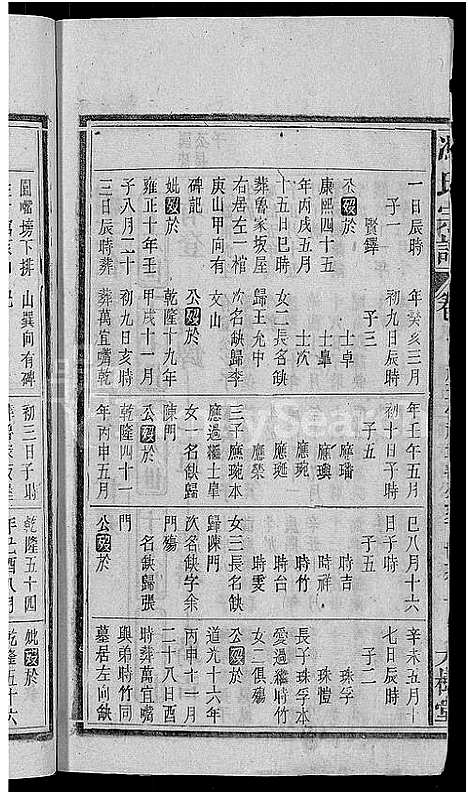 一日辰時
子一
賢鐸
公殁於
康熙四十五
年丙戌五月
十五日巳時
葬魯家坂屋
右居左一棺
庚山甲向有
碑記
妣殁於
雍正十年壬
子八月二十
三日辰時葬
年癸亥三月
初九日辰時
子三
士卓
士臯
士次
女二長名缺
歸王允中
次名缺歸李
文山
公殁於
乾隆十九年
甲戌十一月
初九日亥時
葬萬宜嘴乾
年壬午五月
初十日子時
子五
應璠
應璵
應琬
應珽
應榮
三子應琬本
應過繼士臯
女一名缺歸
陳門
公殁於
乾隆四十一
年丙申五月
巳八月十六
日子時
子五
時吉
時祥
時竹
時台
時雯
女三長名缺
歸陳門
次名缺字余
門殤
名缺歸張
門
公殁於
辛未五月十
七日辰時
子二
珠愷
珠孚
長子珠孚本
愛過繼時竹
女二俱殤
公殁於
道光十六年
丙申十一月
二十八日酉
時葬萬宜嘴
與弟時竹同
墓居左向缺
圍嘴塝下排
山巽向有碑
初三日子時
乾隆五十四
妣殁於